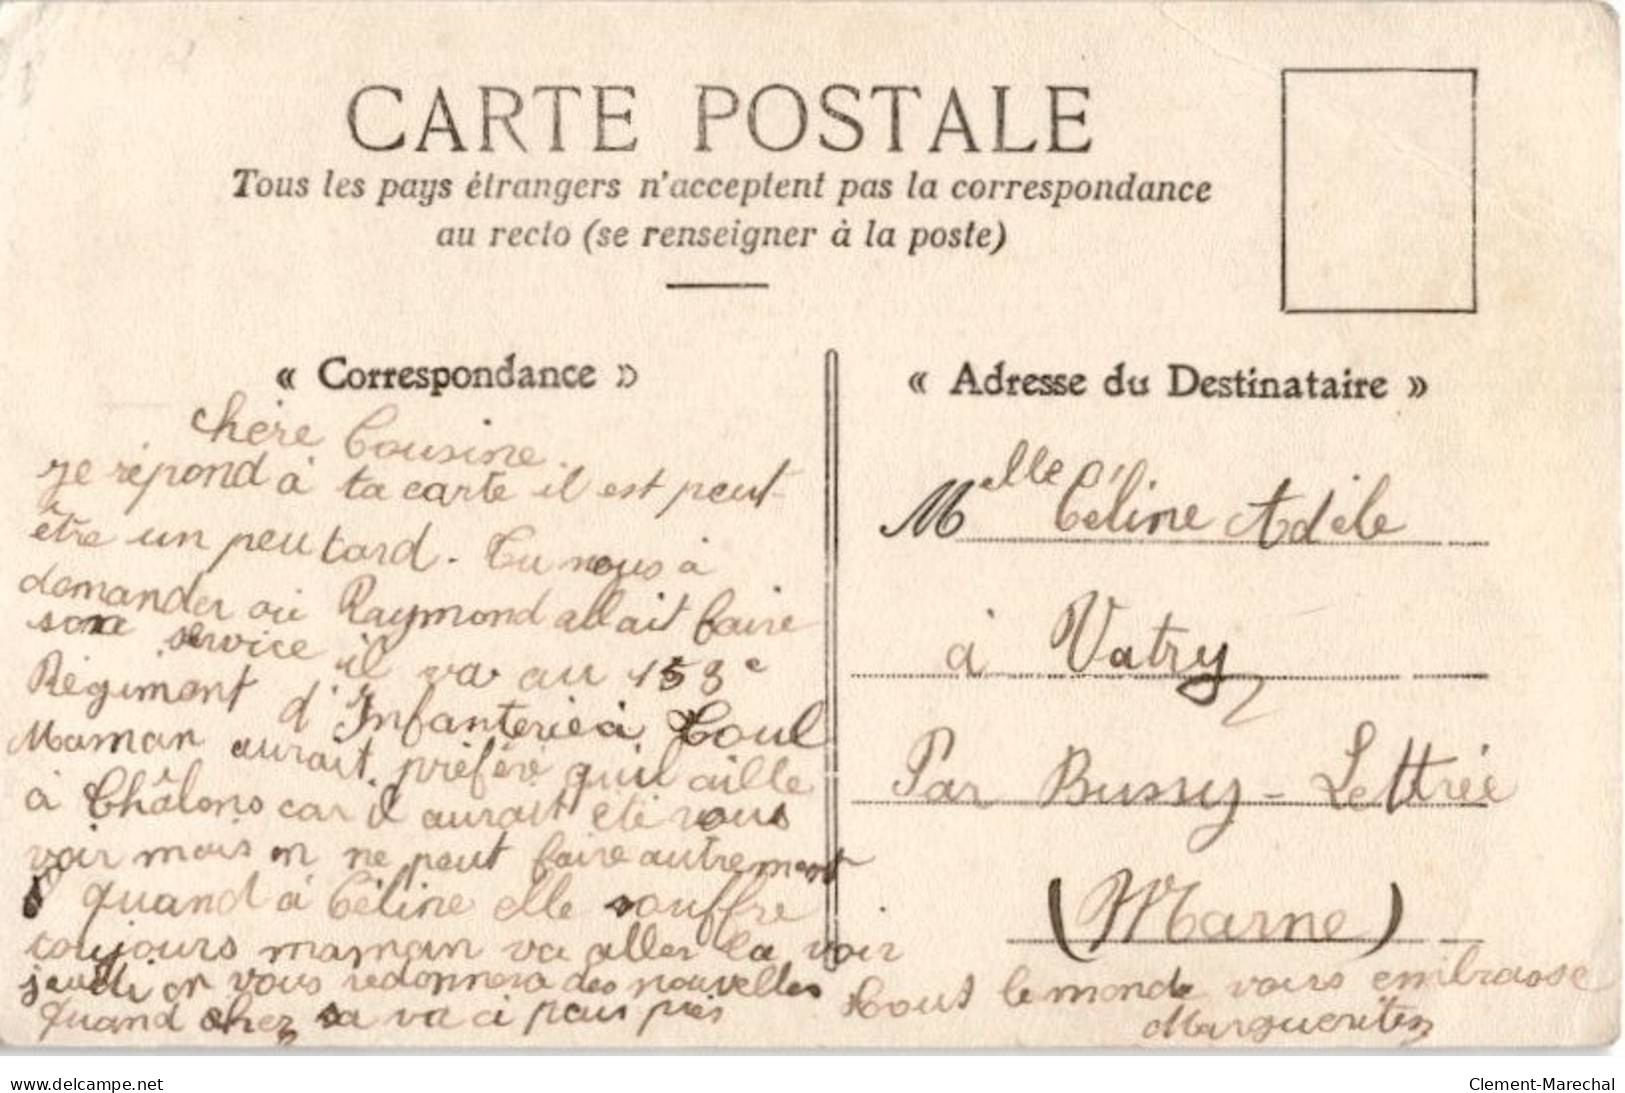 CARTE POSTALE
Tous les pays étrangers n'acceptent pas la correspondance
au recto (se renseigner à la poste)
« Correspondance »
chère Cousine.
je répond à ta carte il est peut-
être un peu tard. Tu nous à
demander où Raymond allait faire
sone service il va au 153e
Régiment d'Infanterie à Toul
Maman aurait préféré qu'il aille
à Châlons car il aurait été vous
voir mais on ne peut faire autrement
quand à Céline elle souffre
toujours maman va aller la voir
jeudi on vous redonnera des nouvelles
quand chez sa va à peus près
« Adresse du Destinataire »
Melle Céline Adèle
à Vatry
Par Bussy-Lettrée
(Marne)
Tout le monde vous embrasse
Marguerite
delcampe.net
Clement-Marechal